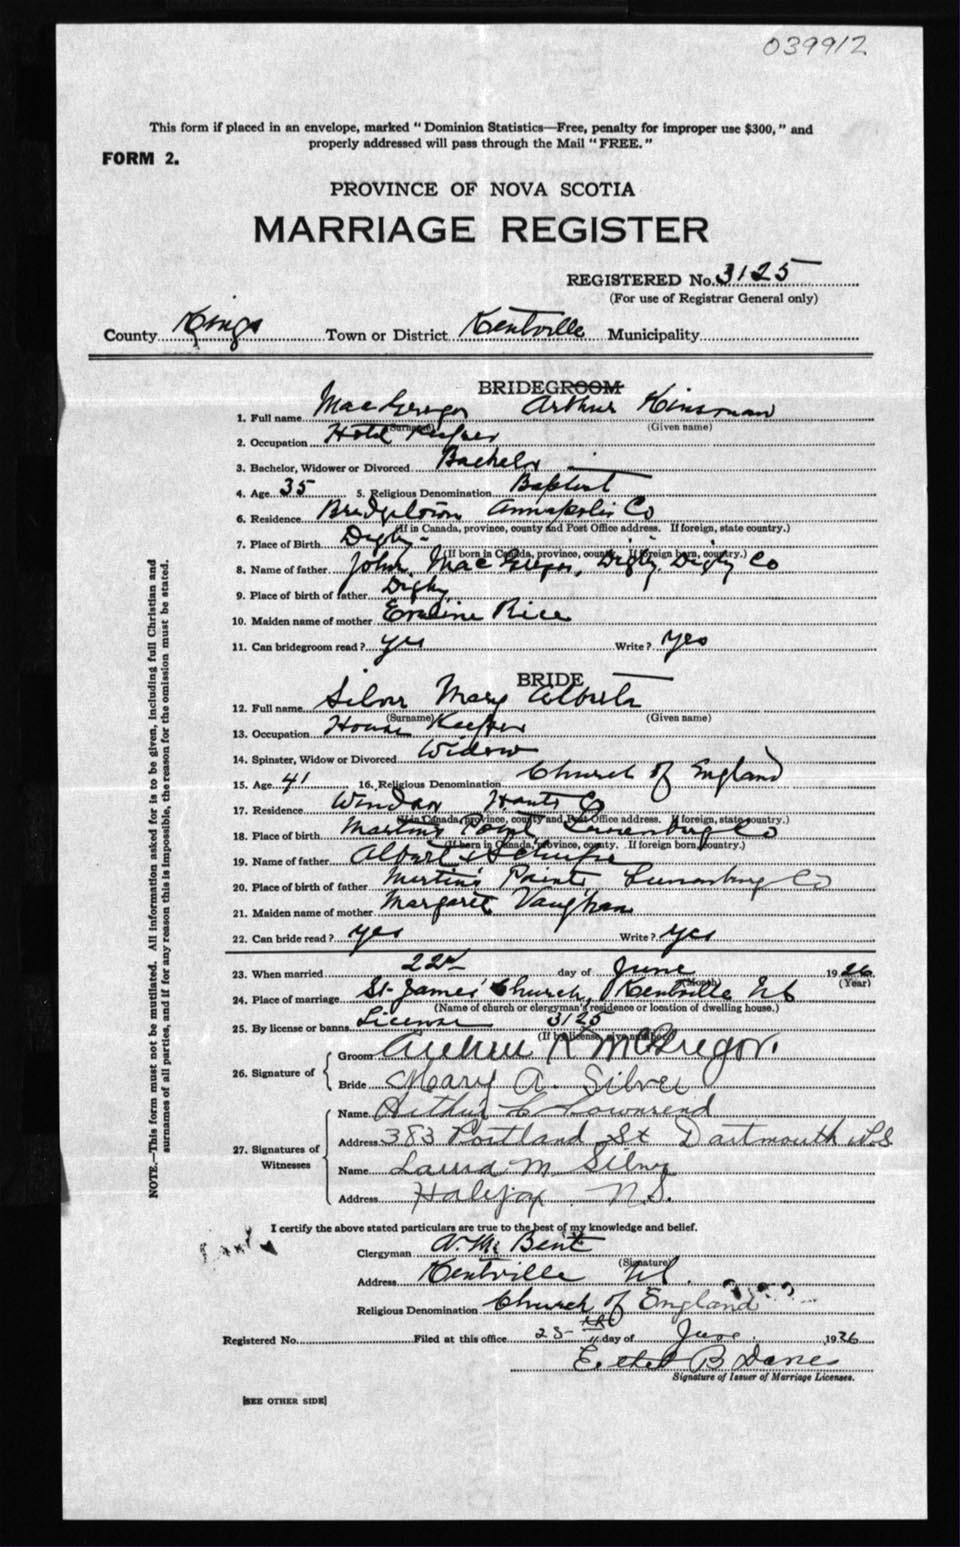 039912
This form if placed in an envelope, marked "Dominion Statistics—Free, penalty for improper use $300," and
properly addressed will pass through the Mail "FREE."
FORM 2.
PROVINCE OF NOVA SCOTIA
MARRIAGE REGISTER
REGISTERED No. 3125
(For use of Registrar General only)
County Kings Town or District Kentville Municipality
BRIDEGROOM
1. Full name MacGregor Arthur Kinsman
(Surname) (Given name)
2. Occupation Hotel Keeper
3. Bachelor, Widower or Divorced Bachelor
4. Age 35 5. Religious Denomination Baptist
6. Residence Bridgetown Annapolis Co
(If in Canada, province, county and Post Office address. If foreign, state country.)
7. Place of Birth Digby
(If born in Canada, province, county. If foreign born, country.)
8. Name of father John MacGregor, Digby, Digby Co
9. Place of birth of father Digby
10. Maiden name of mother Rice
11. Can bridegroom read? yes Write? yes
BRIDE
12. Full name Silver Mary Alberta
(Surname) (Given name)
13. Occupation House Keeper
14. Spinster, Widow or Divorced Widow
15. Age 41 16. Religious Denomination Church of England
17. Residence Windsor Hants Co
(If in Canada, province, county and Post Office address. If foreign, state country.)
18. Place of birth Martins Point Lunenburg Co
(If born in Canada, province, county. If foreign born, country.)
19. Name of father Albert
20. Place of birth of father Martins Point Lunenburg Co
21. Maiden name of mother Margaret Vaughan
22. Can bride read? yes Write? yes
23. When married 22nd day of June 1926
(Month) (Year)
24. Place of marriage St James' Church, Kentville NS
(Name of church or clergyman's residence or location of dwelling house.)
25. By license or banns License 3125
(If by license, give number)
26. Signature of
Groom Arthur K McGregor.
Bride Mary A. Silver
27. Signatures of Witnesses
Name Arthur C Townsend
Address 383 Portland St Dartmouth N.S
Name Laura M. Silver
Address Halifax N.S.
I certify the above stated particulars are true to the best of my knowledge and belief.
Clergyman Bent
(Signature)
Address Kentville NS.
Religious Denomination Church of England
Registered No. Filed at this office 25 day of June 1926
Ethel B
Signature of Issuer of Marriage Licenses.
[SEE OTHER SIDE]
NOTE.—This form must not be mutilated. All information asked for is to be given, including full Christian and
surnames of all parties, and if for any reason this is impossible, the reason for the omission must be stated.